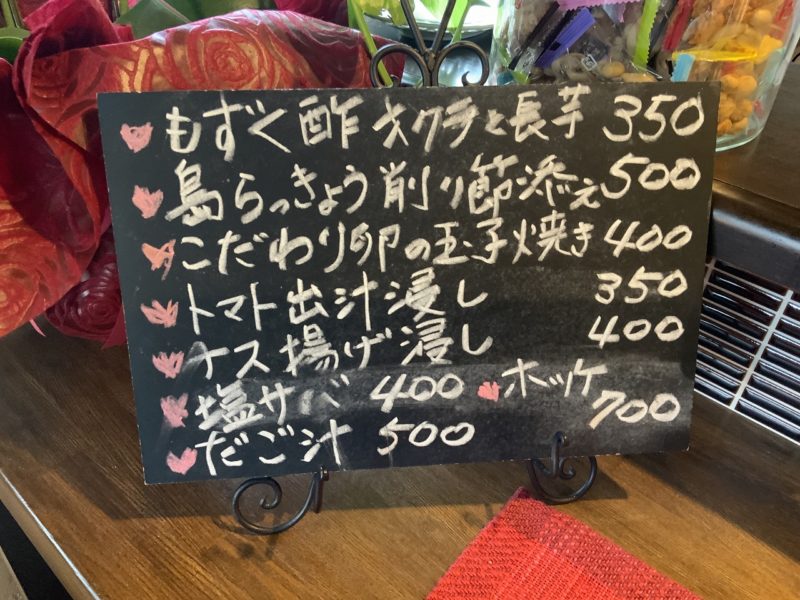 もずく酢 オクラと長芋 350
島らっきょう削り節添え 500
こだわり卵の玉子焼き 400
トマト出汁浸し 350
ナス揚げ浸し 400
塩サバ 400 ホッケ 700
だご汁 500